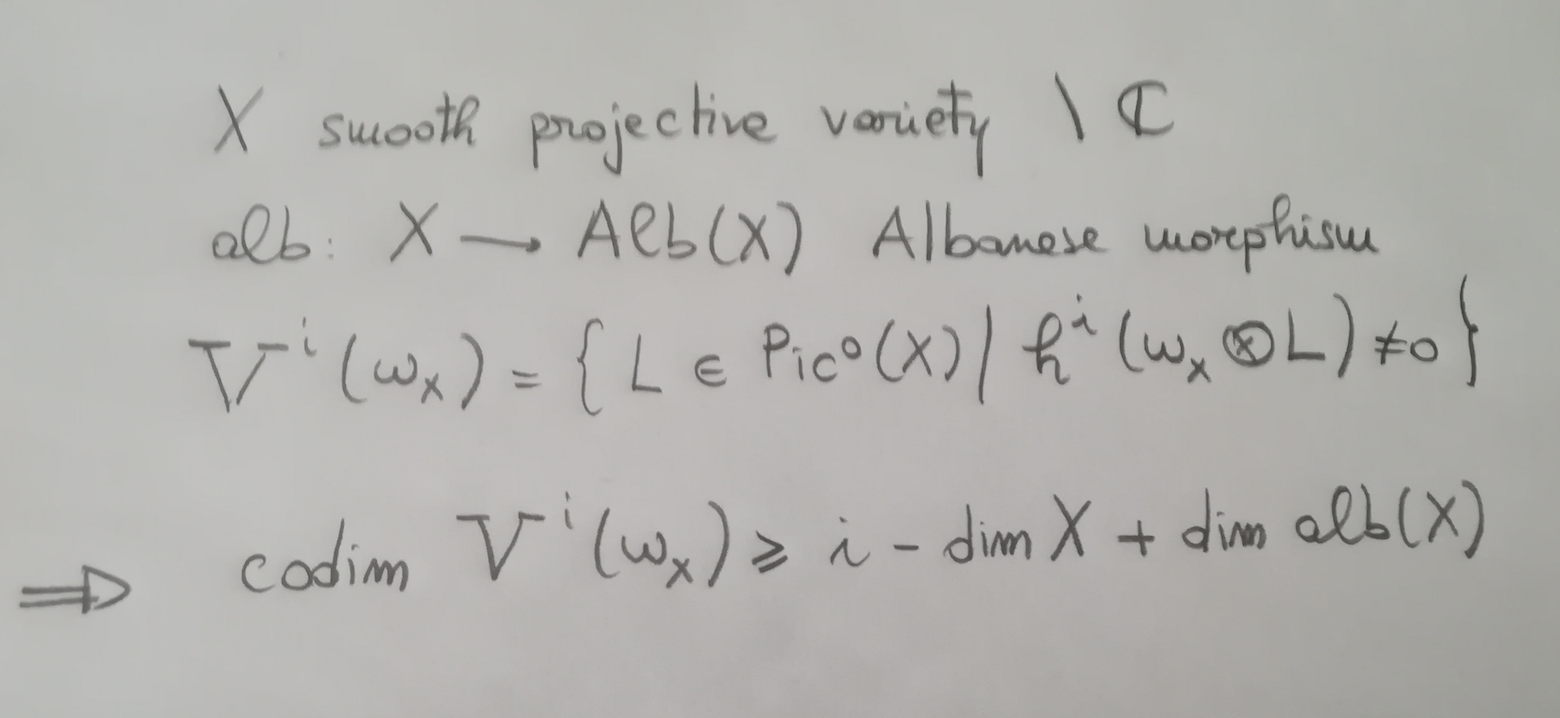 X smooth projective variety \ ℂ
alb: X → Alb(X) Albanese morphism
Vⁱ(ω_X) = { L ∈ Pic⁰(X) | hⁱ(ω_X ⊗ L) ≠ 0 }
⇒ codim Vⁱ(ω_X) ≥ i - dim X + dim alb(X)